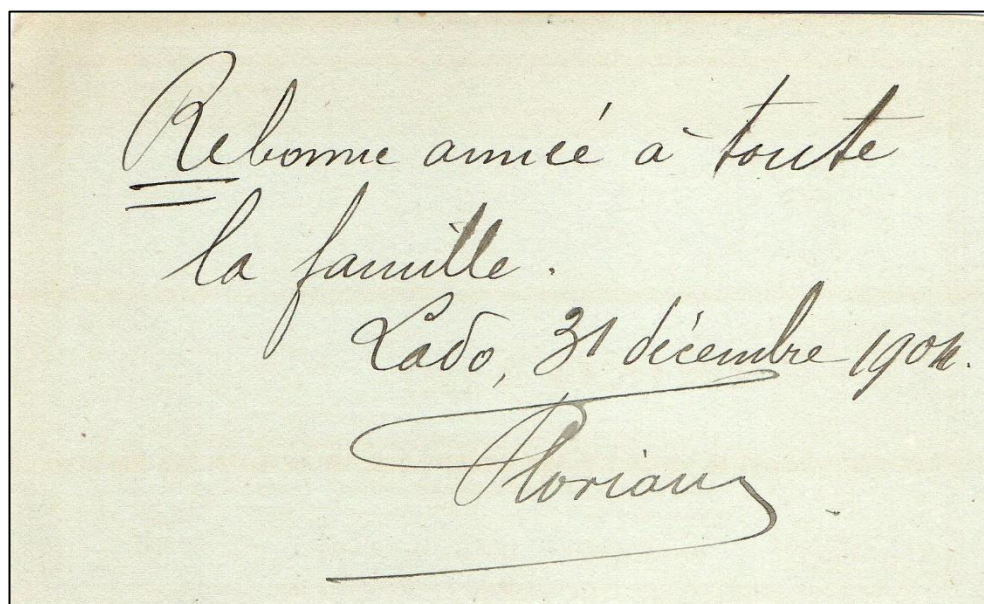 Rebonne année à toute
la famille.
Lado, 31 décembre 1904.
Florian